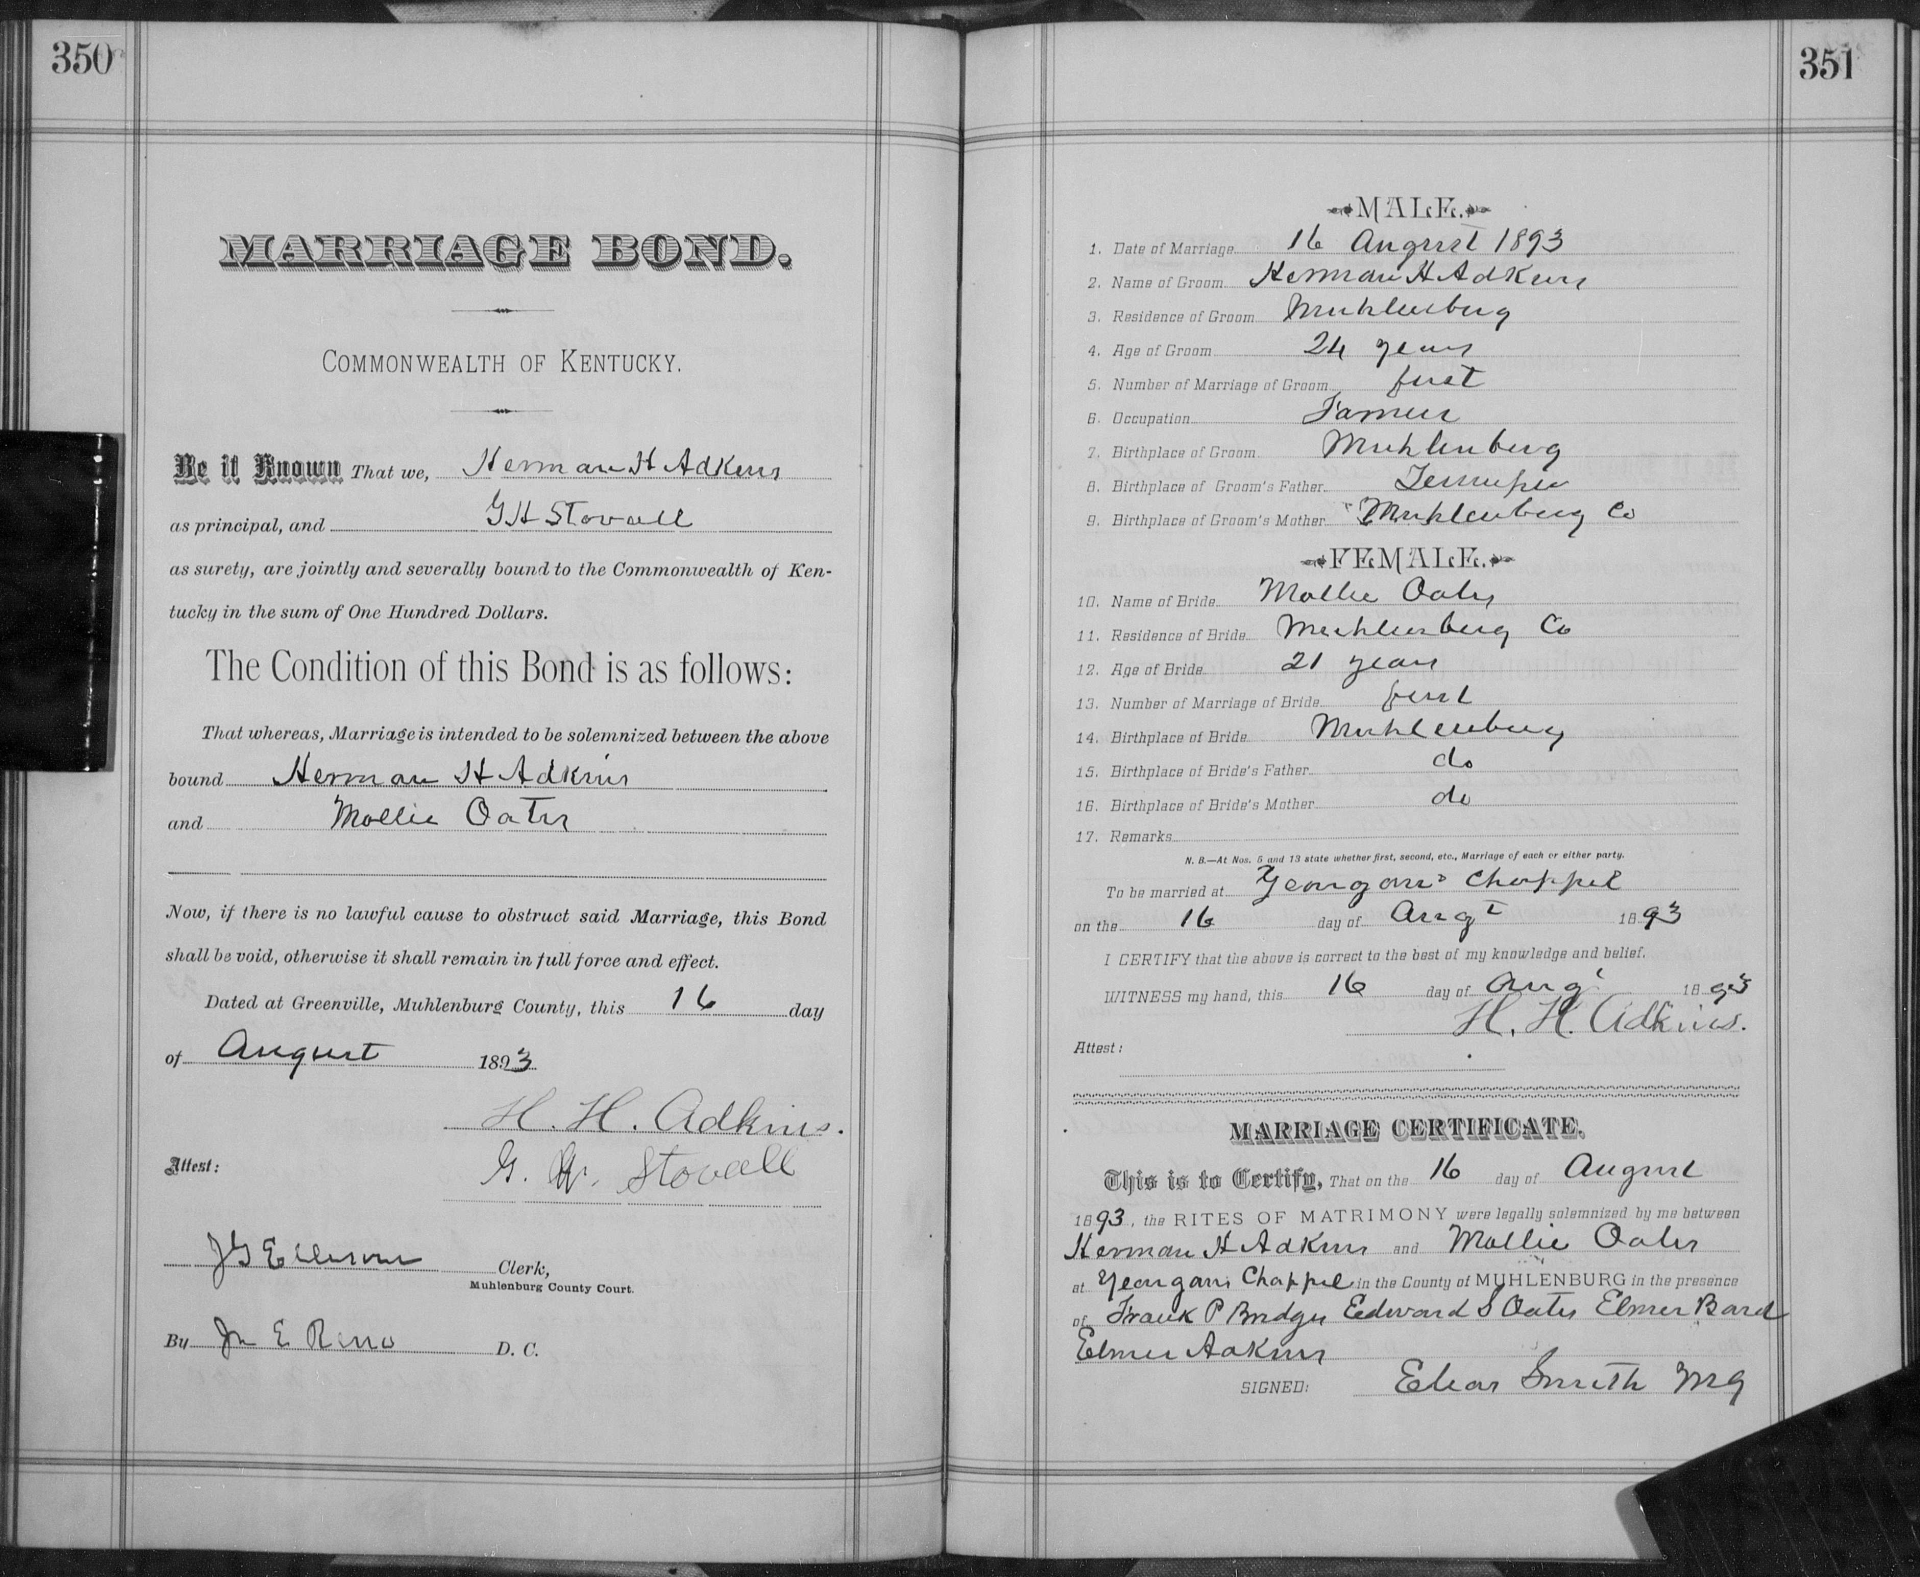 350
MARRIAGE BOND.
COMMONWEALTH OF KENTUCKY.
Be it Known That we, Herman H Adkins
as principal, and G H Stovall
as surety, are jointly and severally bound to the Commonwealth of Ken-
tucky in the sum of One Hundred Dollars.
The Condition of this Bond is as follows:
That whereas, Marriage is intended to be solemnized between the above
bound Herman H Adkins
and Mollie Oates
Now, if there is no lawful cause to obstruct said Marriage, this Bond
shall be void, otherwise it shall remain in full force and effect.
Dated at Greenville, Muhlenburg County, this 16 day
of August 1893
H. H. Adkins.
G. H. Stovall
Attest:
J G Ellison Clerk,
Muhlenburg County Court.
By Jn E Reno D. C.
351
MALE.
1. Date of Marriage 16 August 1893
2. Name of Groom Herman H Adkins
3. Residence of Groom Muhlenberg
4. Age of Groom 24 years
5. Number of Marriage of Groom first
6. Occupation Farmer
7. Birthplace of Groom Muhlenberg
8. Birthplace of Groom's Father Tennessee
9. Birthplace of Groom's Mother Muhlenberg Co
FEMALE.
10. Name of Bride Mollie Oates
11. Residence of Bride Muhlenberg Co
12. Age of Bride 21 years
13. Number of Marriage of Bride first
14. Birthplace of Bride Muhlenberg
15. Birthplace of Bride's Father do
16. Birthplace of Bride's Mother do
17. Remarks
N. B.—At Nos. 5 and 13 state whether first, second, etc., Marriage of each or either party.
To be married at Yeargans Chappel
on the 16 day of Augt 1893
I CERTIFY that the above is correct to the best of my knowledge and belief.
WITNESS my hand, this 16 day of Aug 1893
H. H. Adkins.
Attest:
MARRIAGE CERTIFICATE.
This is to Certify, That on the 16 day of August
1893, the RITES OF MATRIMONY were legally solemnized by me between
Herman H Adkins and Mollie Oates
at Yeargans Chappel in the County of MUHLENBURG in the presence
of Frank P Bridges Edward S Oates Elmer Bard
Elmer Adkins
SIGNED: Elias Smith MG